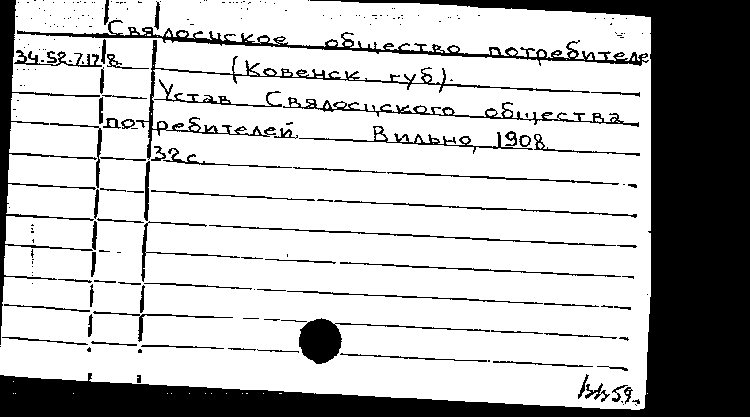 Свядосцское общество потребителе
34.52.7.178. (Ковенск. губ).
Устав Свядосцского общества
потребителей. Вильно, 1908.
32 с.